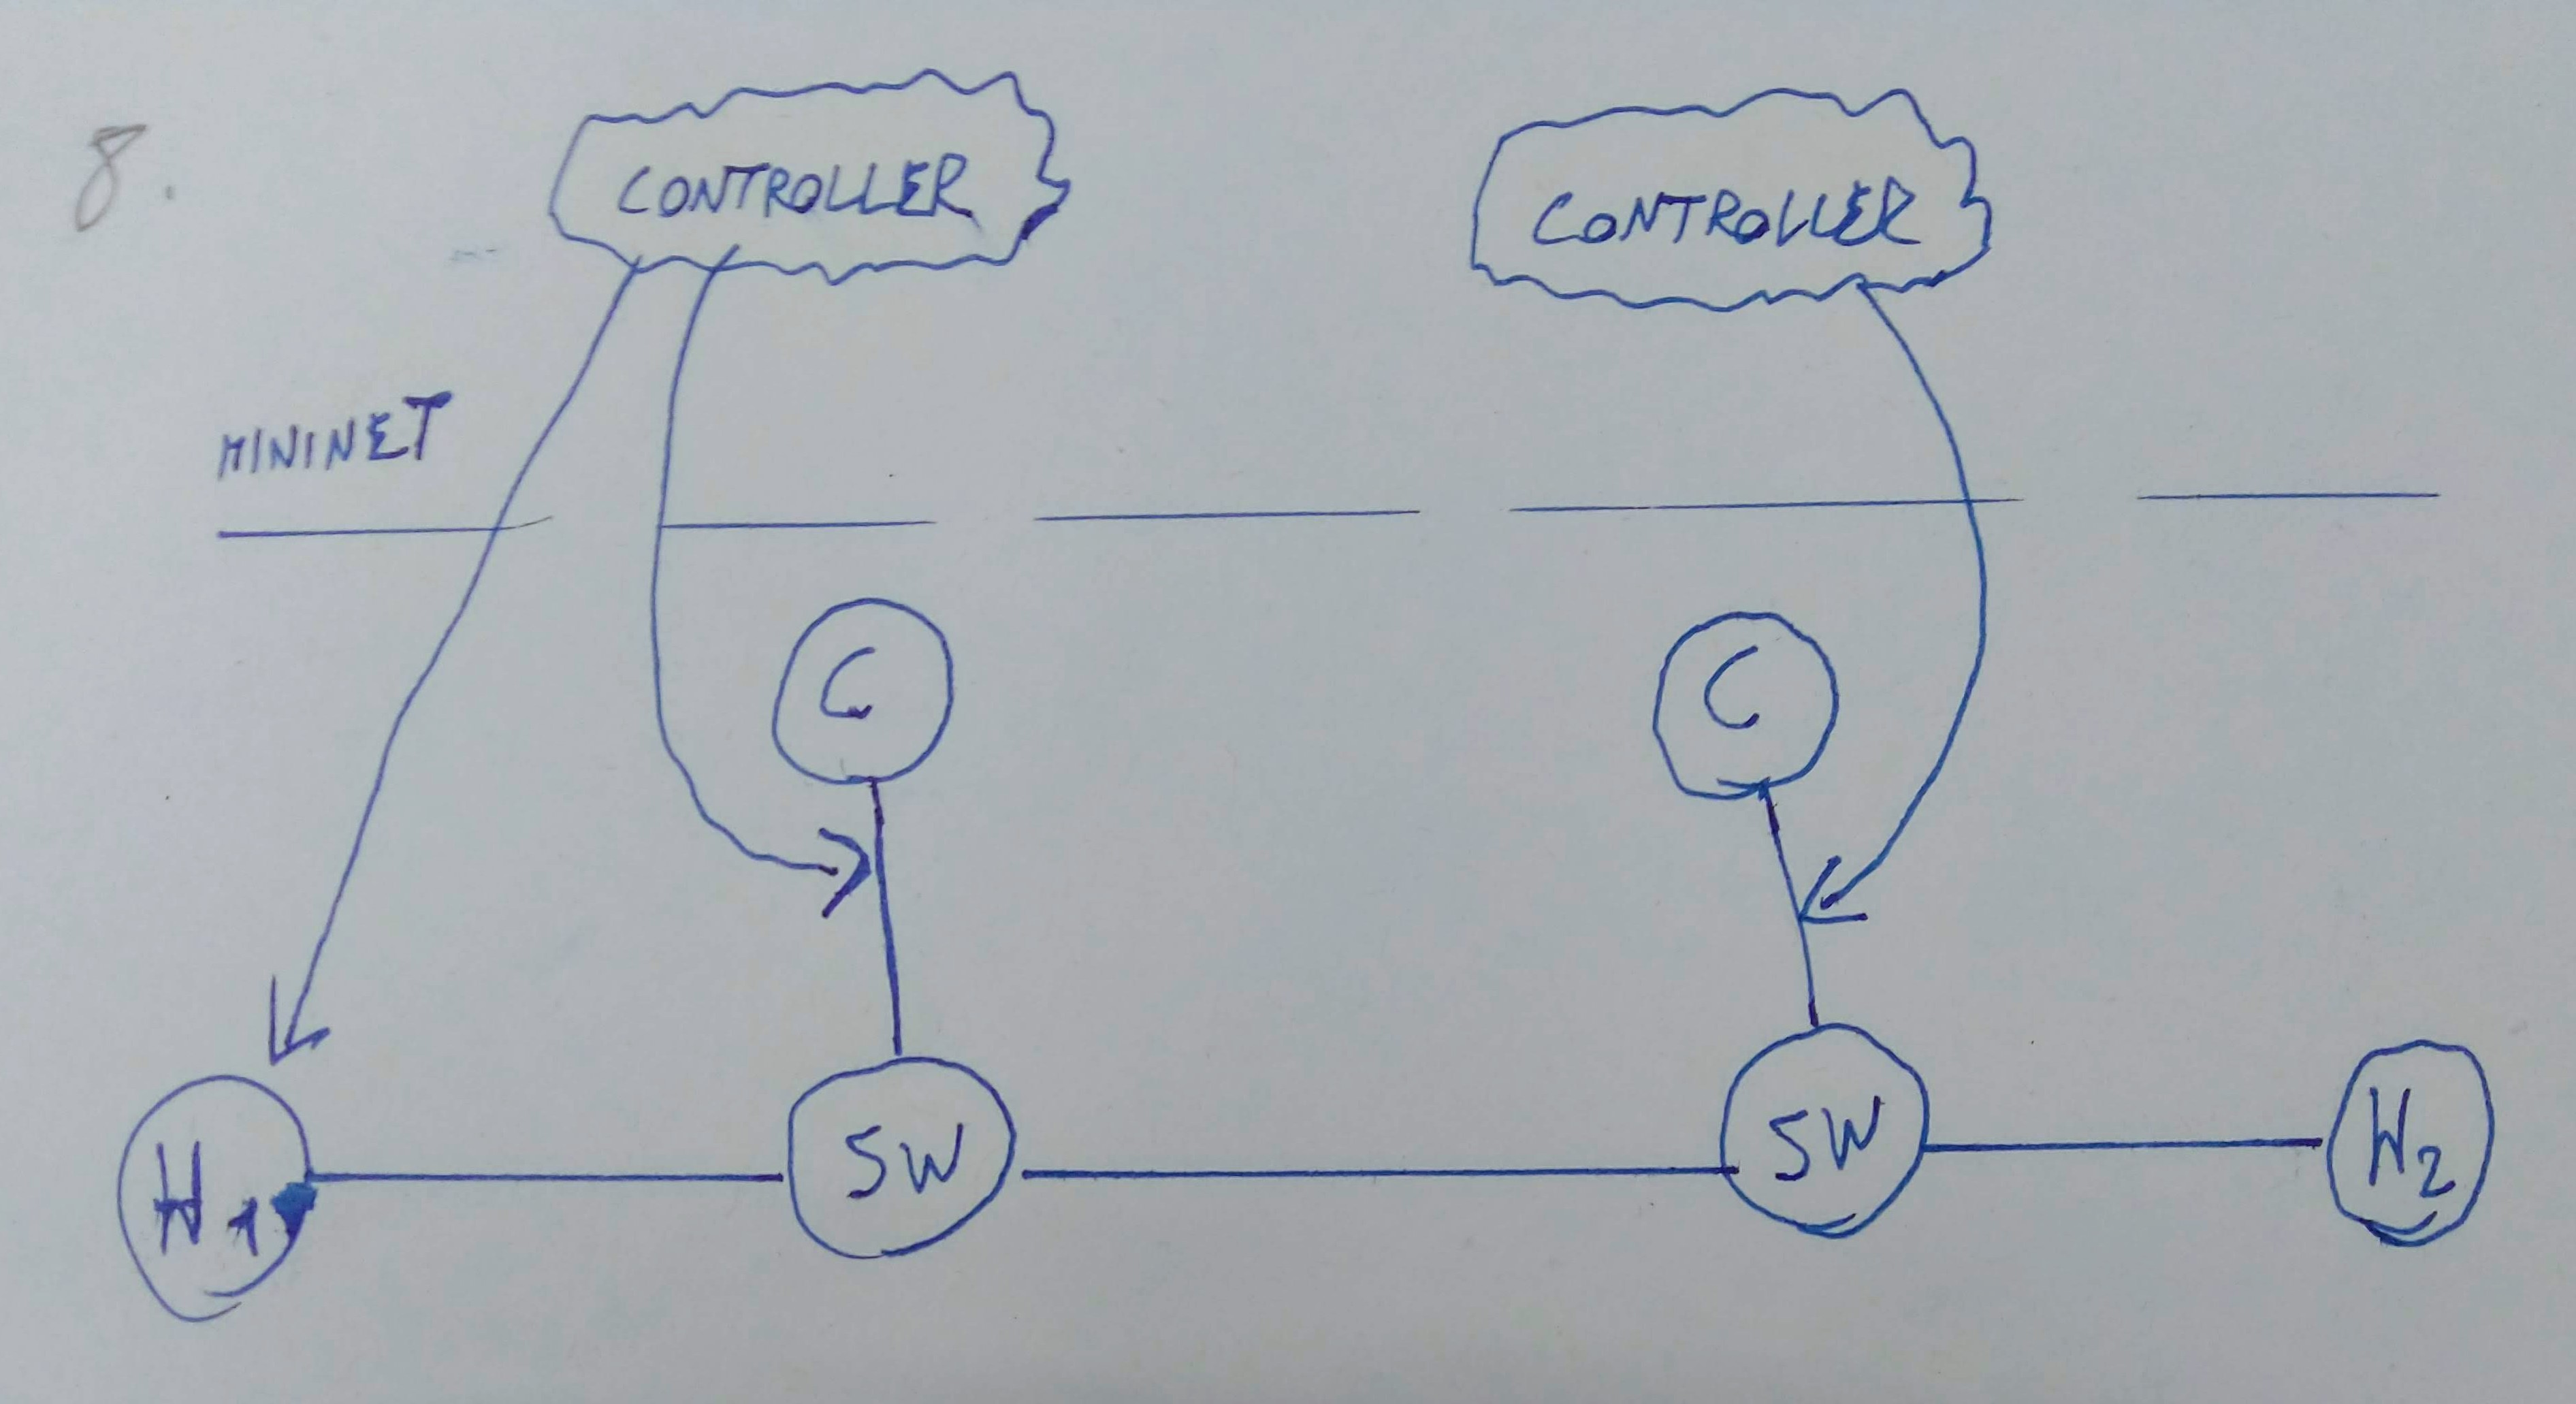 8.
CONTROLLER
CONTROLLER
MININET
C
C
H1
SW
SW
H2